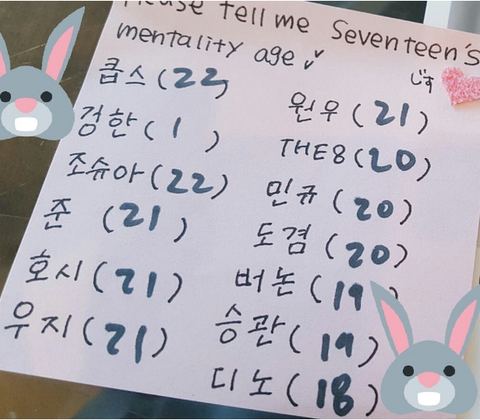 Please tell me Seventeen's
mentality age
じす
쿱스 (22)
정한 (1 )
조슈아 (22)
준 (21)
호시 (21)
우지 (21)
원우 (21)
THE8 (20)
민규 (20)
도겸 (20)
버논 (19)
승관 (19)
디노 (18)